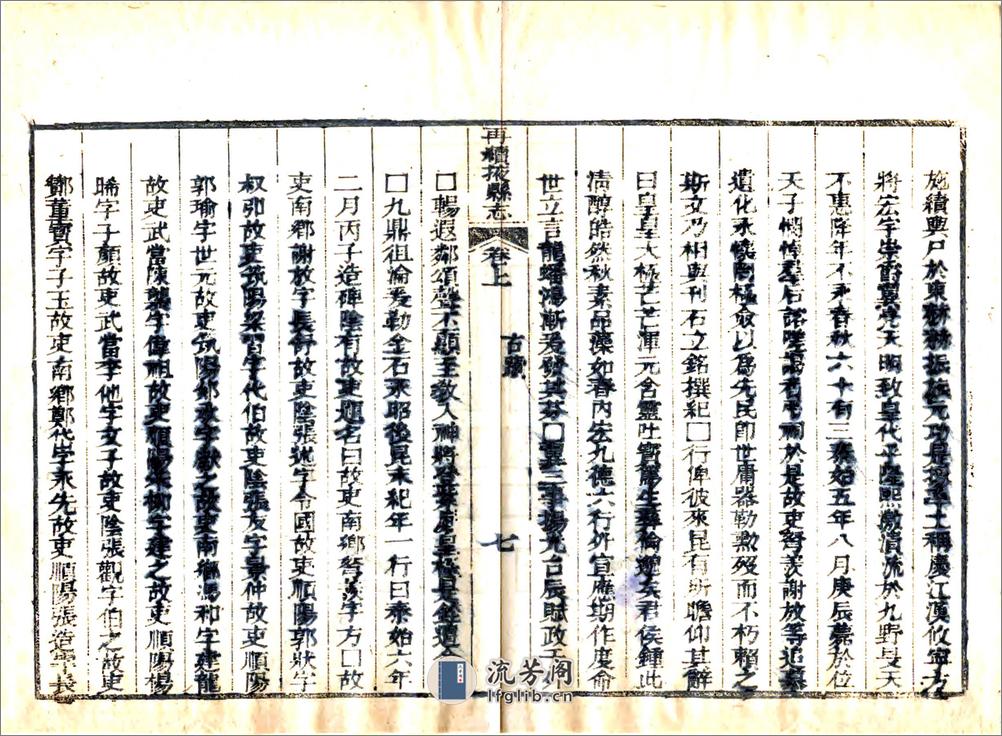 施續興戶於東 振旅元功是 王稱慶江漢攸寧方
將宏宇崇爵翼亮天明致皇代乎隆熙激淸流於九野昊天
不惠降年不永春秋六十有三泰始五年八月庚辰薨於位
天子憫悼羣后咨嗟謁者弔祠於是故吏 謝放等追慕
遺化永懷 極 以爲先民 世庸器勒勲歿而不朽賴之
斯文乃相與刊石立銘撰紀□行俾彼來昆有所瞻仰其辭
曰皇皇大極芒芒渾元含靈吐 生彝倫 矣君侯鍾此
淸醇皓然秋素品藻如春內 九德六行外宣應期作度命
世立言龍蟠鴻漸 其芬□翼三事揚光台辰賦政
□暢遐鄰頌聲丕顯王敎人神將登 皇極是 遺
□九鼎徂淪爰勒金石永昭後昆末紀年一行曰泰始六年
二月丙子造碑陰有故吏題名曰故吏南鄉 字方□故
吏南鄉謝放字長舒故吏陰張 字令國故吏順陽郭狀字
叔 故吏筑陽梁習字代伯故吏陰張友字景仲故吏順陽
郭瑜字世元故吏筑陽 字 之故吏南鄉馮和字建龍
故吏武當陳 字偉祖故吏順陽朱 字建之故吏順陽楊
晞字子顏故吏武當李他字文子故吏陰張觀字伯之故吏
酇董寳字子玉故吏南鄉鄭代字永先故吏順陽張造字
再續掖縣志
卷上
古蹟
七
流芳阁
lfglib.cn